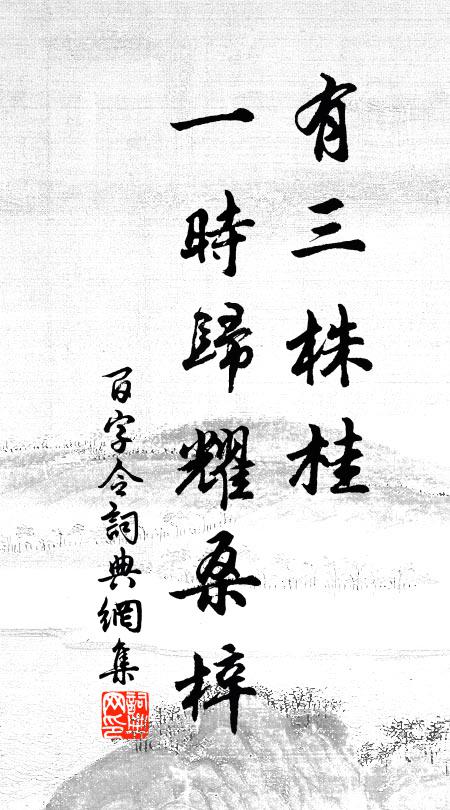 有三株桂
一時歸耀桑梓
百字令詞典網集